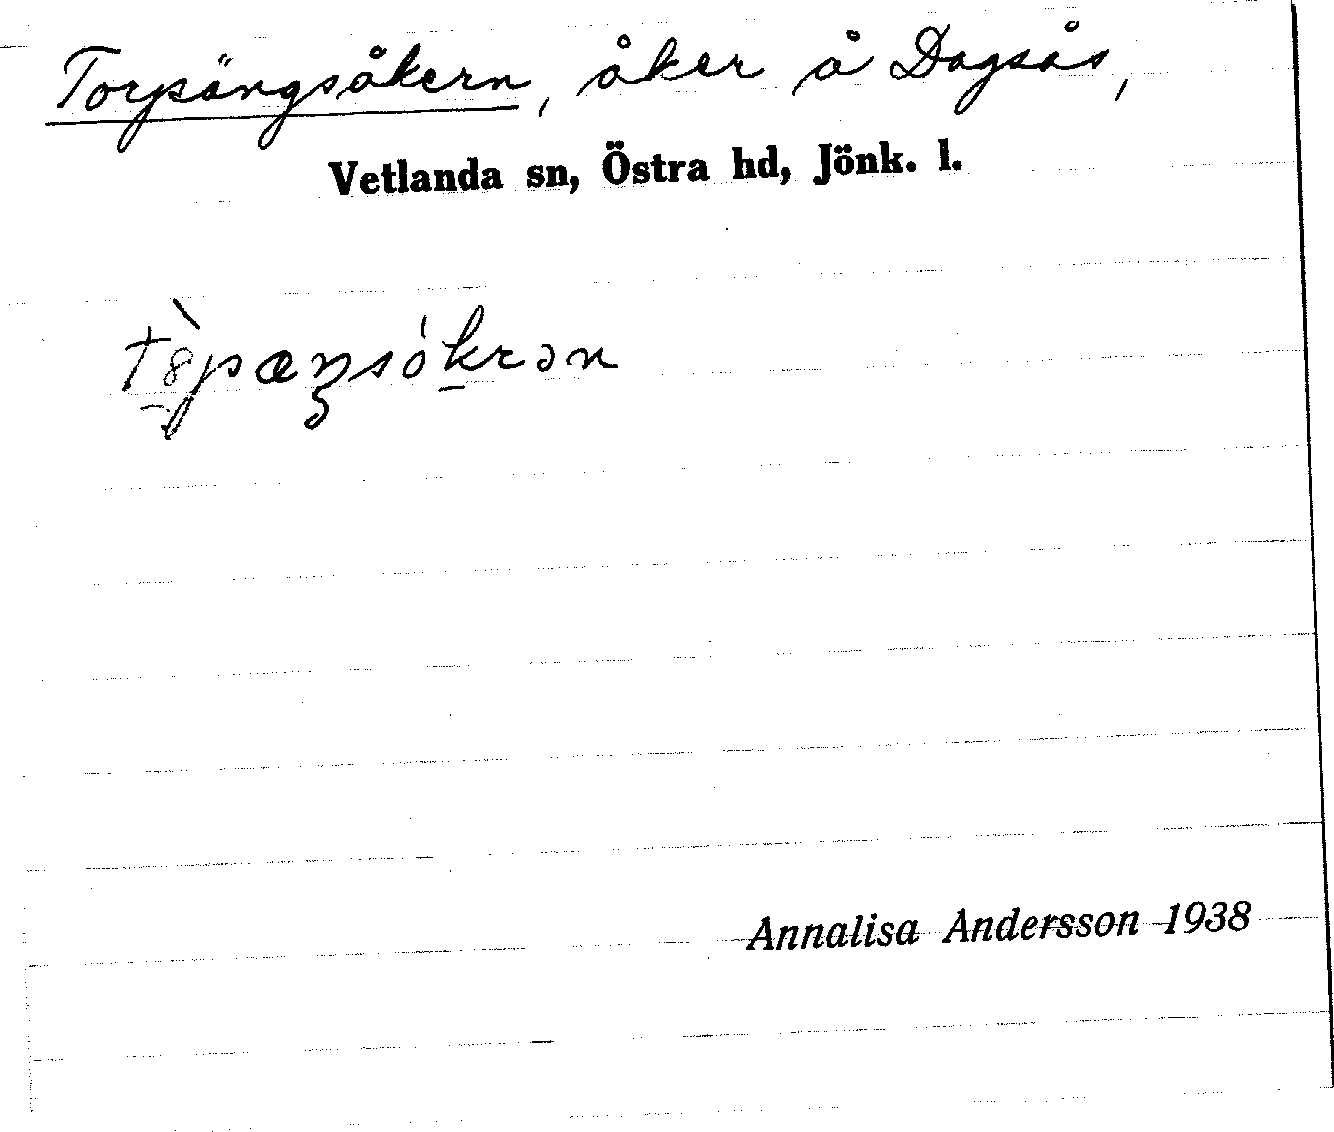 Torpängsåkern, åker å Dagsås,
Vetlanda sn, Östra hd, Jönk. l.
Annalisa Andersson 1938